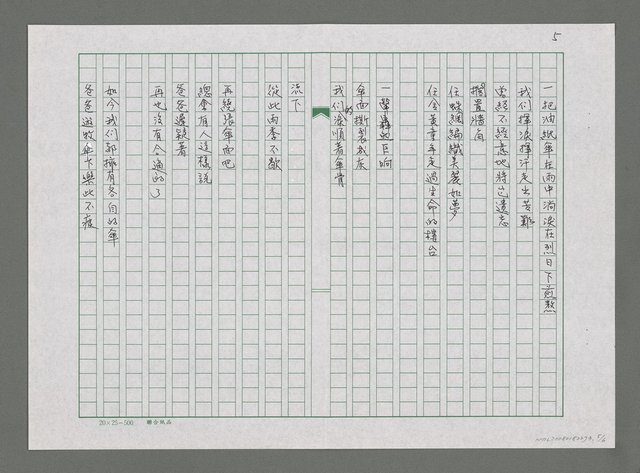 5
一把油紙傘在雨中淌淚在烈日下煎熬
我们揮淚揮汗走出苦難
曾經不經意地將它遺忘
擱置牆角
任蜘蛛編織美麗如夢
任金黃童年走過生命的構台
一聲轟的巨响
傘面撕裂成灰
我们的淚順著傘骨
流下
從此雨季不歇
再繞張傘面吧
總會有人這樣說
爸爸遲疑著
再也沒有合適的了
如今我们都擁有各自的傘
爸爸遊牧傘下樂此不疲
20×25=500 聯合紙品